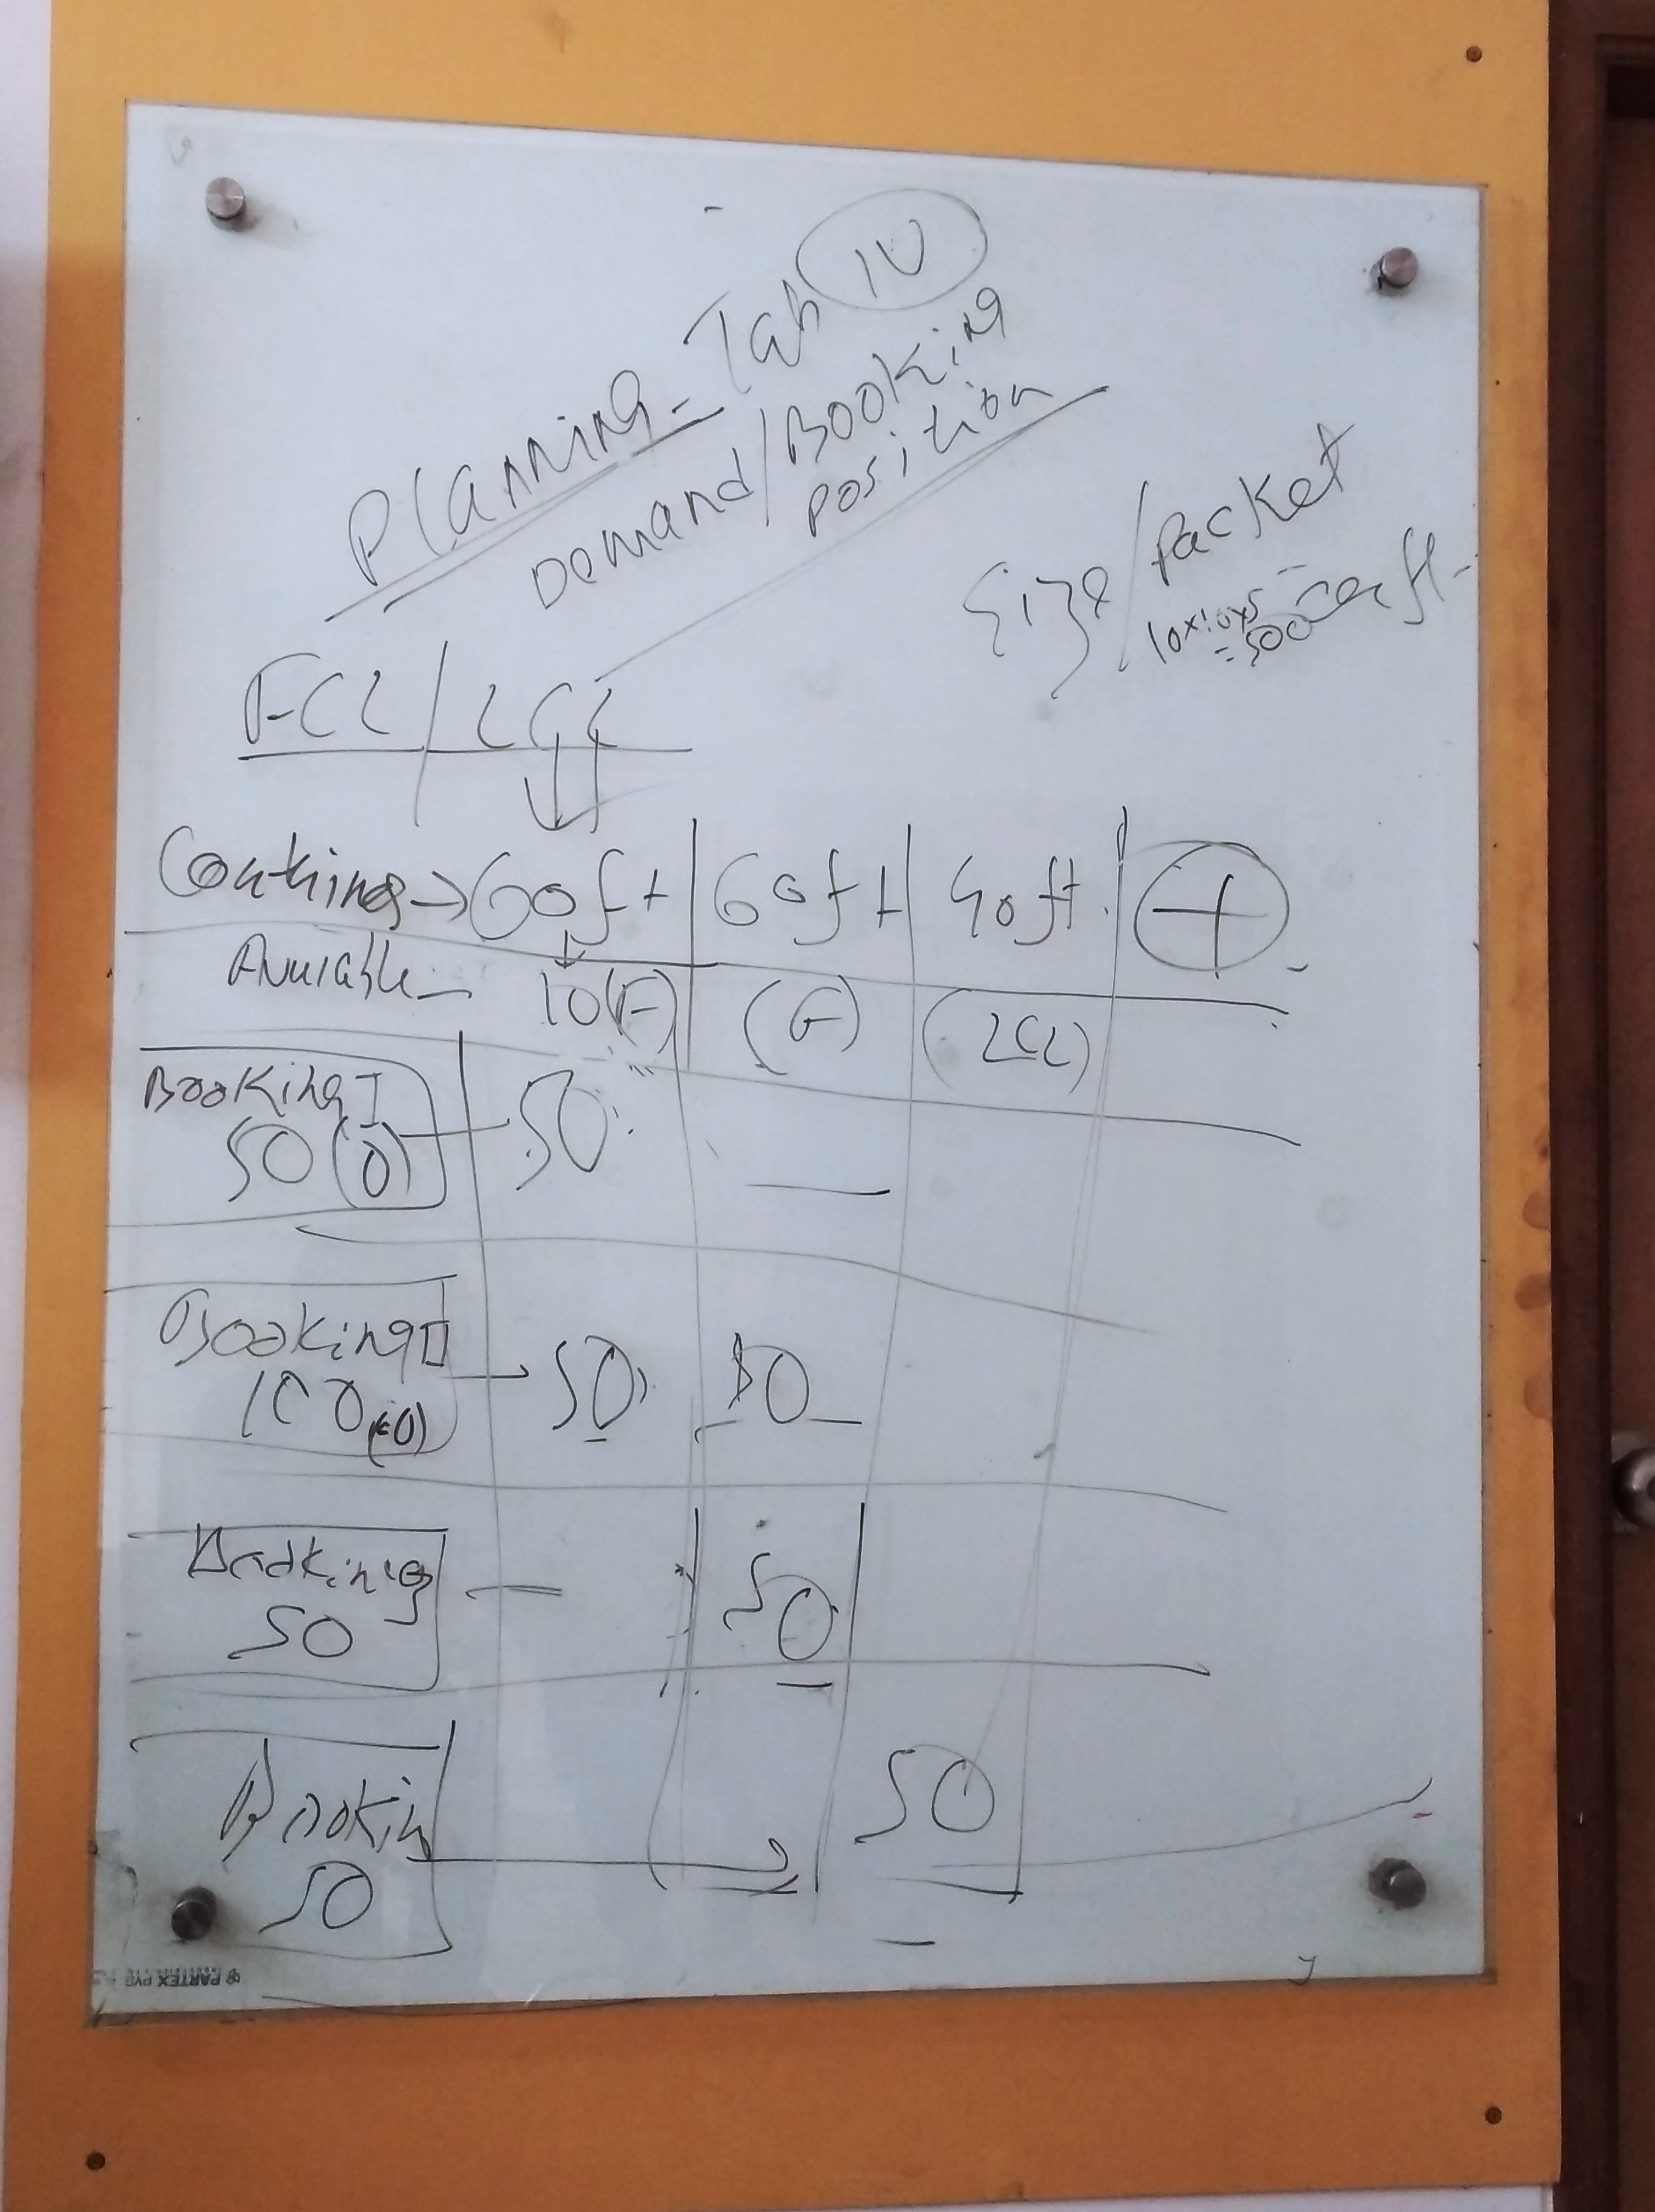 Planning - Tab IV
Demand/Booking
Position
Size/Packet
10x10x5
=500 cft
FCL/LCL
→ 60ft 60ft 40ft +
10(F) (F) (LCL)
Booking I
50 (0) 50
Booking II
100 50 50
Booking
50 50
Bookin
50 50
PARTEX